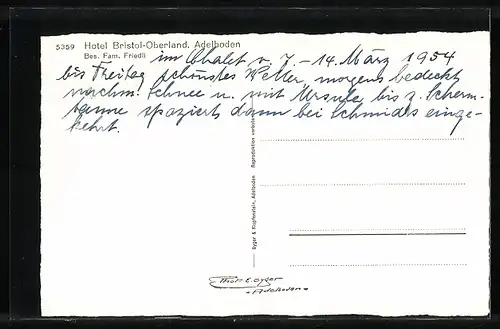 5359 Hotel Bristol-Oberland, Adelboden
Bes. Fam. Friedli
im Chalet v. 7. – 14. März 1954
bis Freitag schönstes Wetter, morgens bedeckt
nachm. Schnee u. mit Ursula bis z. Scherm-
tanne spaziert dann bei Schmides einge-
kehrt.
Gyger & Klopfenstein, Adelboden - Reproduktion verboten
Phot. E. Gyger
Adelboden